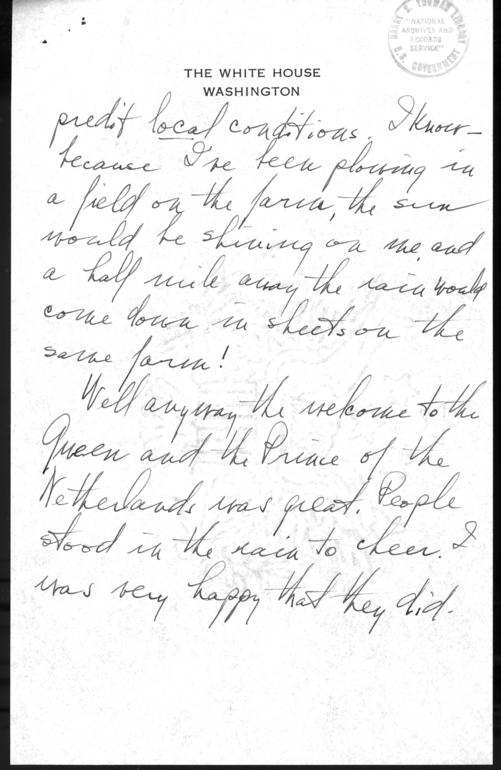 HARRY S. TRUMAN LIBRARY
"NATIONAL
ARCHIVES AND
RECORDS
SERVICE"
U.S. GOVERNMENT
THE WHITE HOUSE
WASHINGTON
predit local conditions. I know—
because I've been plowing in
a field on the farm, the sun
would be shining on me, and
a half mile away the rain would
come down in sheets on the
same farm!
Well anyway the welcome to the
Queen and the Prince of the
Netherlands was great. People
stood in the rain to cheer. I
was very happy that they did.